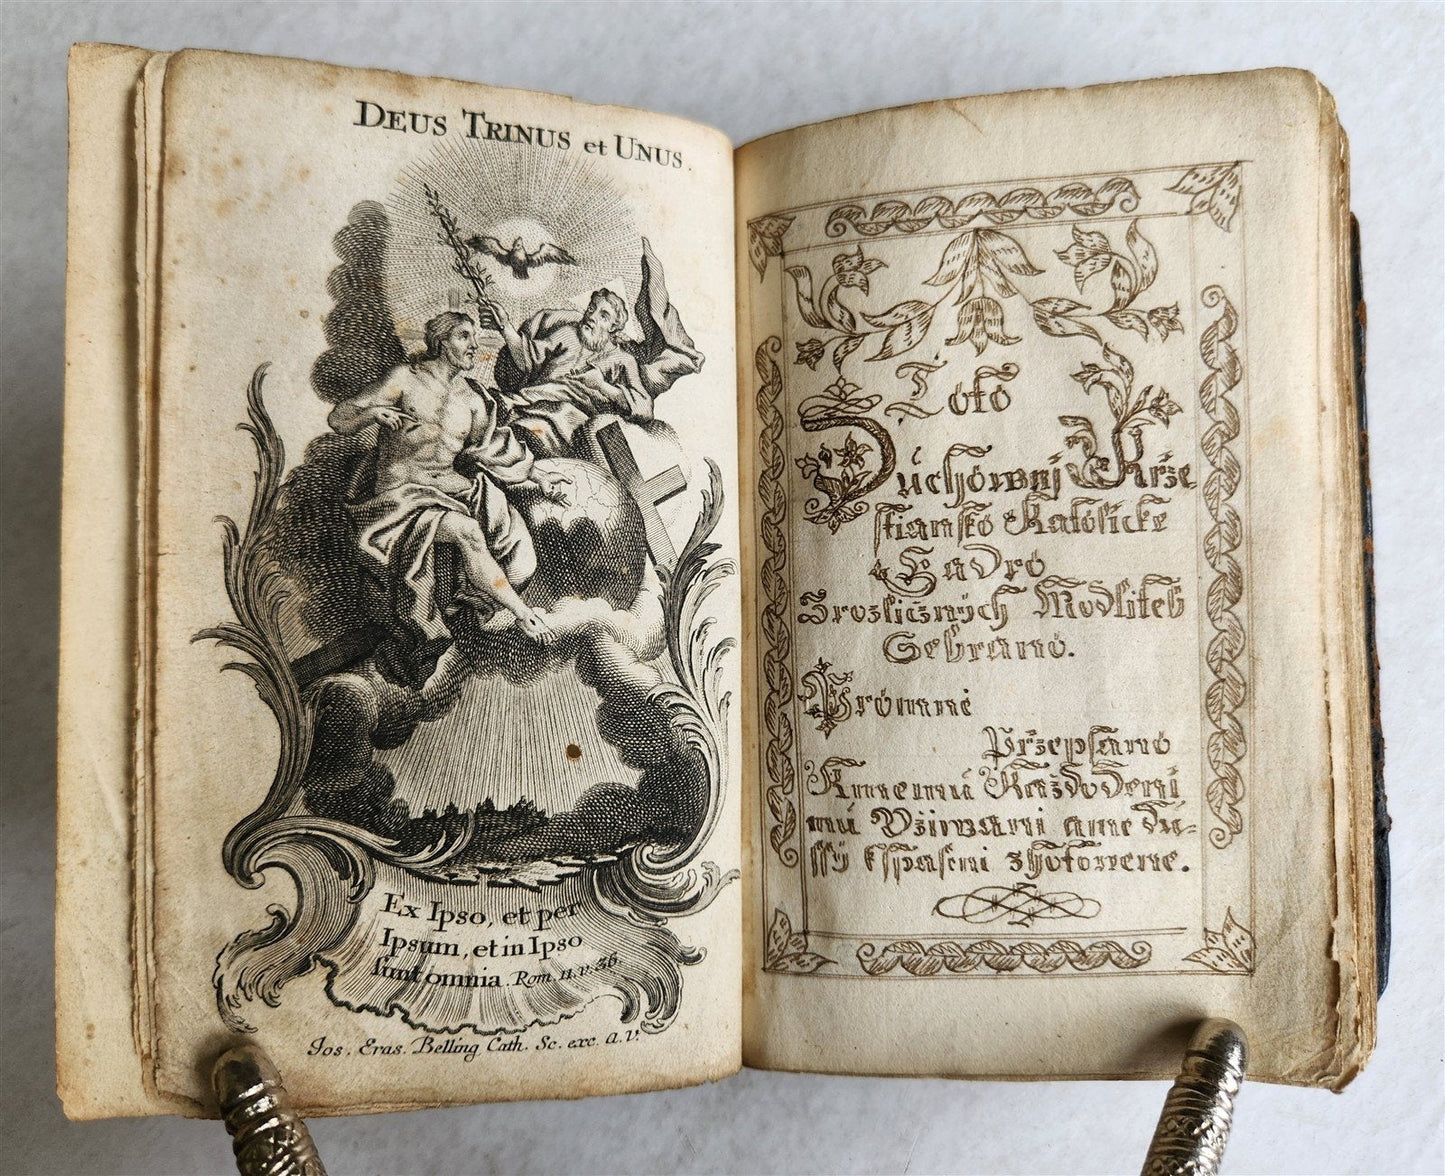 DEUS TRINUS et UNUS.
Ex Ipso, et per
Ipsum, et in Ipso
sunt omnia. Rom. 11. v. 36.
Jos. Eras. Belling Cath. Sc. exc. A. V.
Toto
Duchowni Krže
stiansko Katolicke
Gadro
Zrozlicznych Modliteb
Sebrano.
Przepsano
Kmemu Každodeni
mu Vžiwani ame Du-
ssy kspaseni zhotowene.